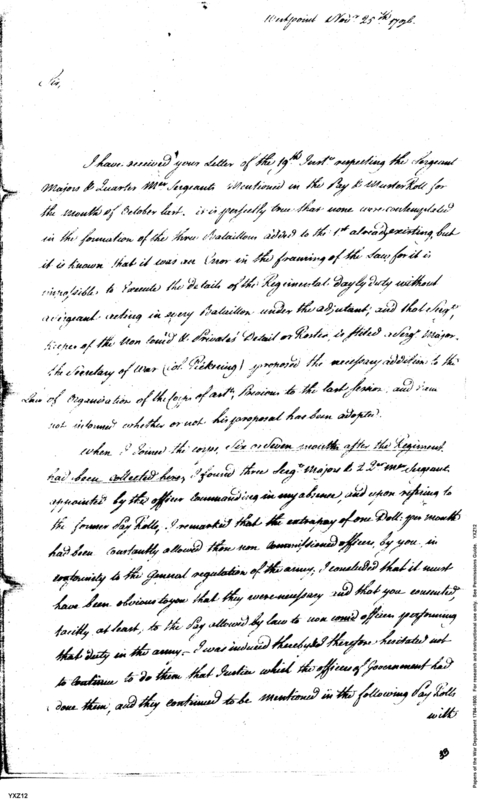 Westpoint Nov.r 25th 1796.
Sir,
I have received your Letter of the 19th Inst. respecting the Sergeant
Majors & Quarter Mer Sergeants Mentioned in the Pay & Muster Roll for
the month of October last. it is perfectly true that none were contemplated
in the formation of the three Batallions added to the 1st already existing, but
it is known that it was an Error in the framing of the Law, for it is
impossible to Execute the details of the Regimental dayly duty without
a Sergeant acting in every Batallion under the adjutant; and that Sergt.
keeper of the Non Com'd & Privates' Detail or Roster, is stiled a Sergt. Major.
the Secretary of War (Col. Pickering) proposed the necessary addition to the
Law of Organisation of the Corps of art.y, Previous to the last Session, and I am
not informed whether or not his proposal has been adopted.
When I Joined the corps, Six or Seven months after the Regiment
had been collected here, I found three Serg.t Majors & 2 Qr Mer Sergeant
appointed by the officer Commanding in my absence, and upon refering to
the former Pay Rolls, I remarked that the extra pay of one Doll: per month
had been Constantly allowed them non Commissioned officers, by you in
conformity to the General regulation of the army, I concluded that it must
have been obvious to you that they were necessary and that you consented,
tacitly at least, to the Pay allowed by law to non com'd officers performing
that duty in the army,– I was induced thereby & therefore hesitated not
to Continue to do them that Justice which the officers of Government had
done them, and they continued to be mentioned in the following Pay Rolls
with
YXZ12
Papers of the War Department 1784-1800. For research and instructional use only. See Permissions Guide. YXZ12